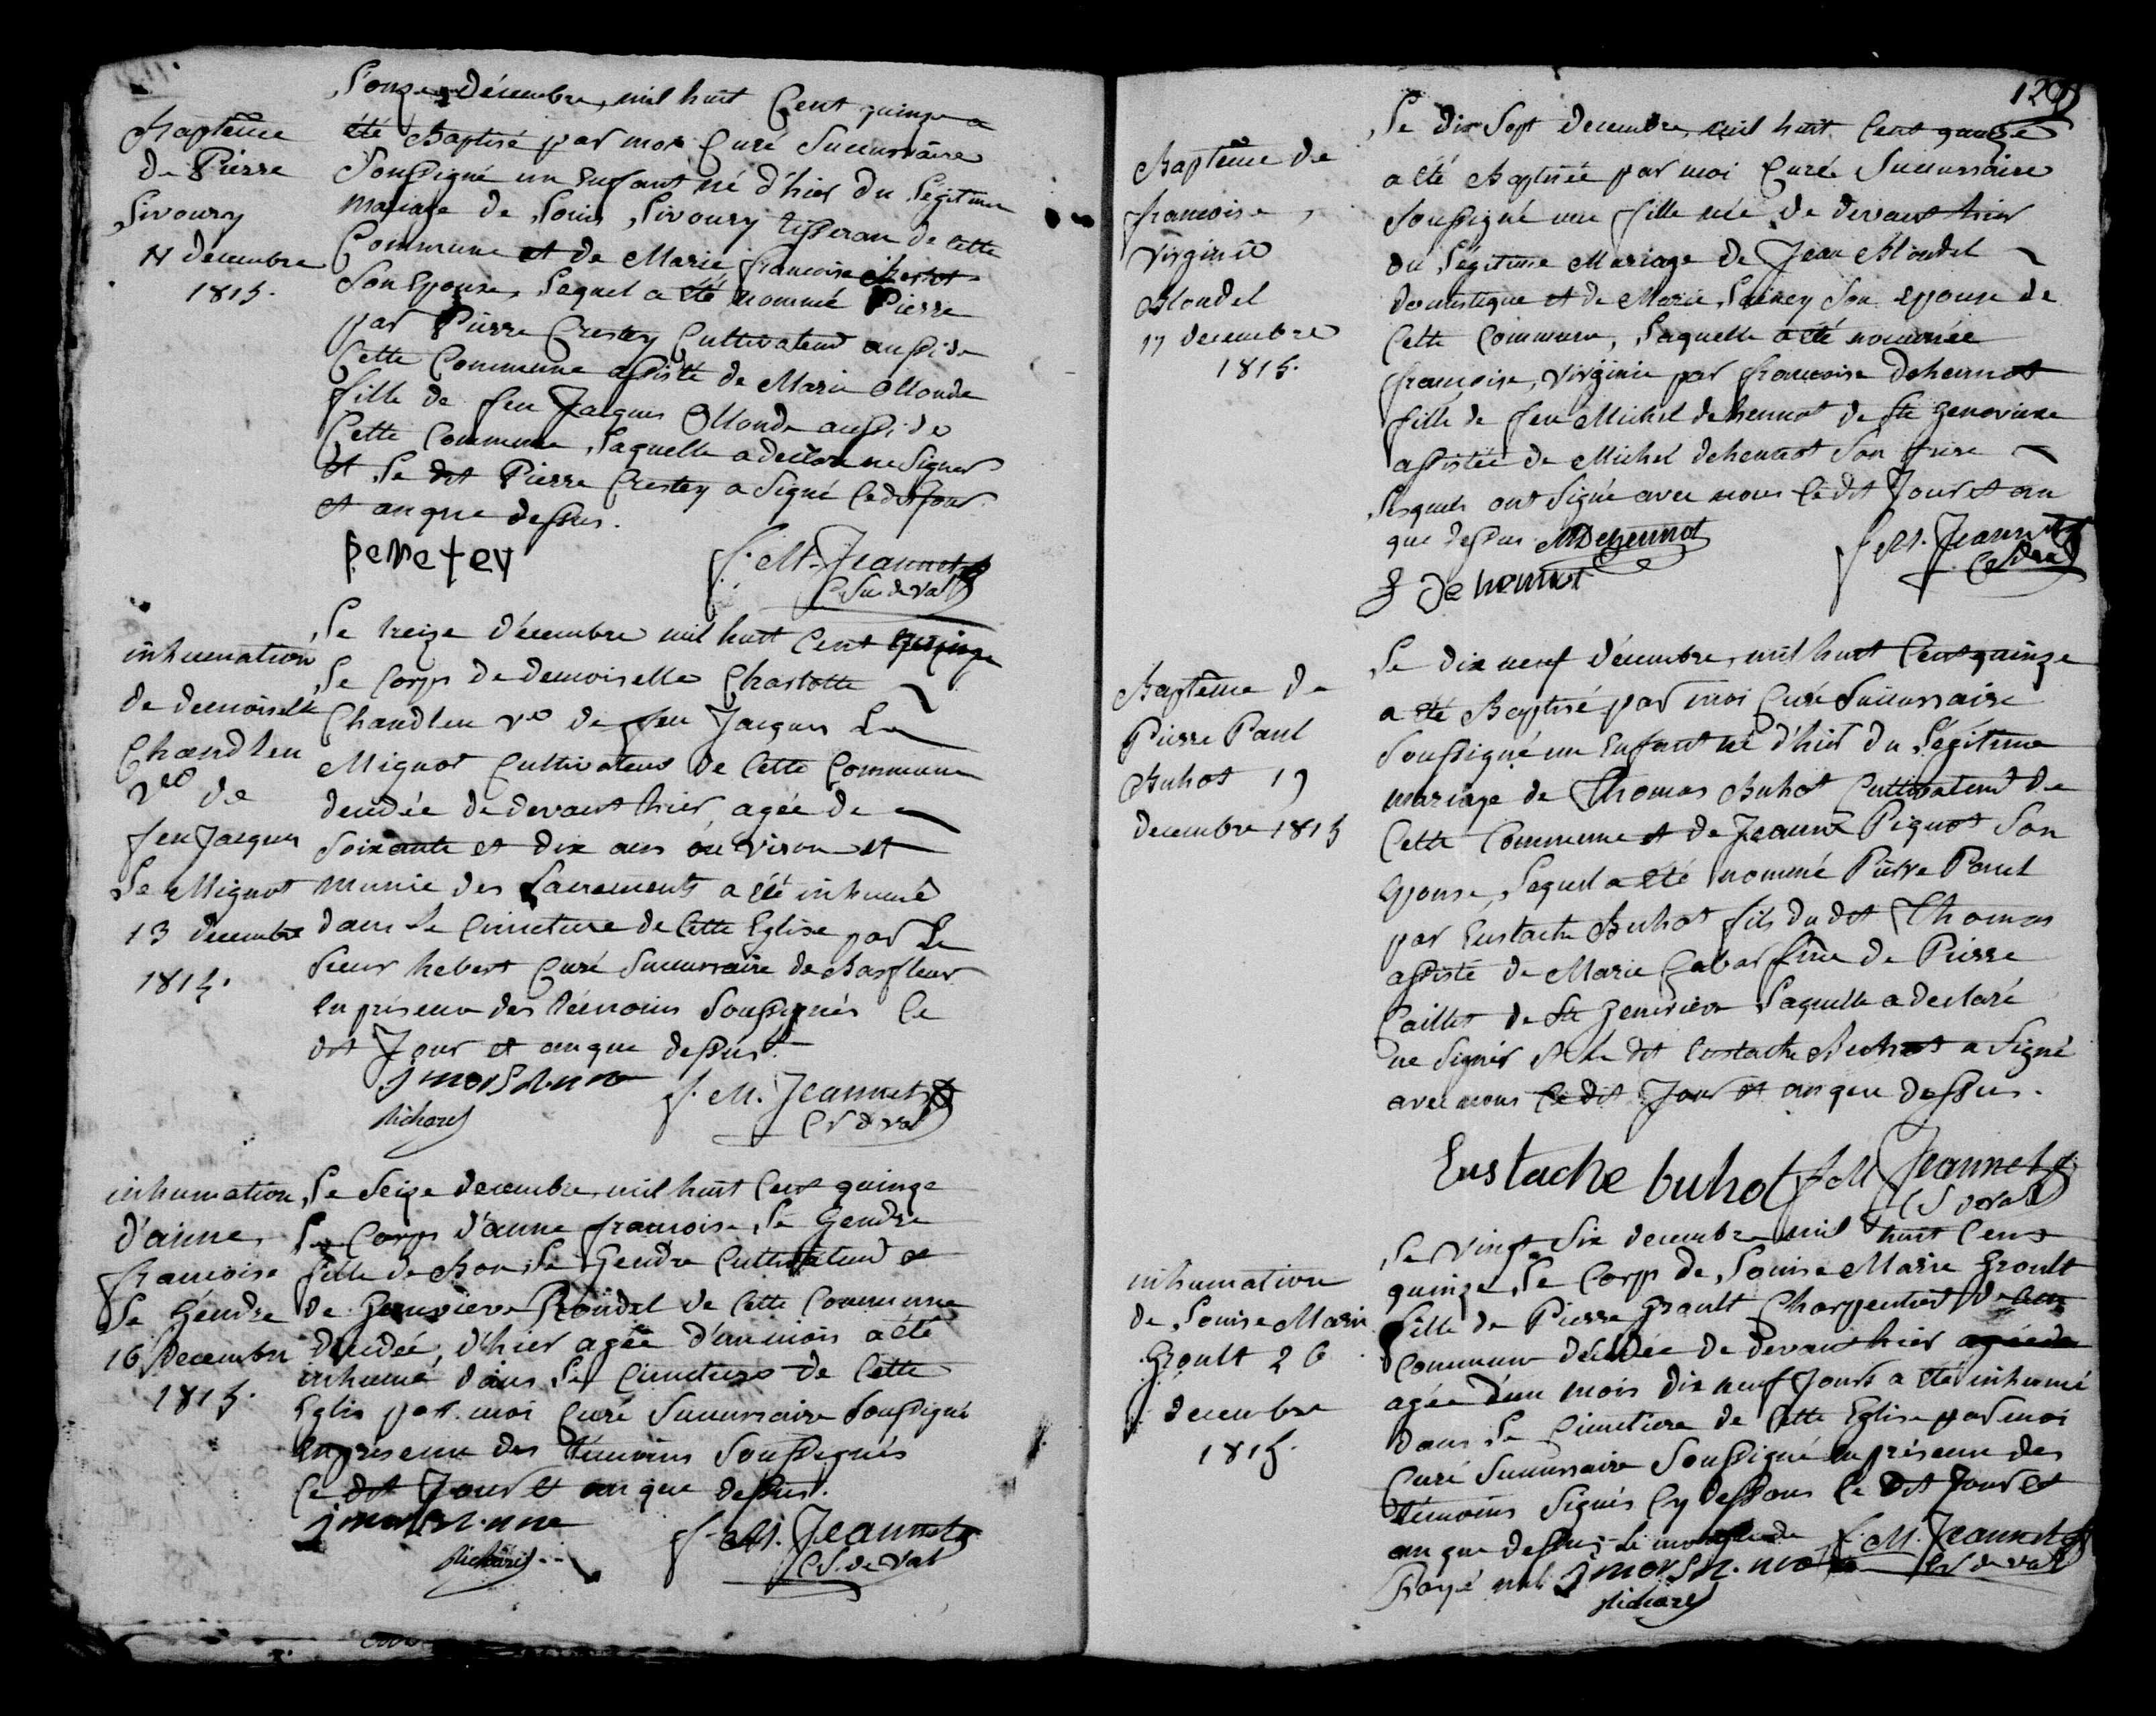 Baptême
de Pierre
Livoury
11 decembre
1815.
L'onze décembre mil huit Cent quinze a
été Baptisé par moi Curé Succursaire
Soussigné un Enfant né d'hier du Légitime
mariage de Louis Livoury tisseran de cette
Commune et de Marie francoise
Son Epouse, Lequel a été nommé Pierre
par Pierre Crestey Cultivateur aussi de
Cette Commune assisté de Marie Ollonde
fille de feu Jacques Ollonde aussi de
Cette Commune, Laquelle a declaré ne Signer
et Le dit Pierre Crestey a Signé Ce dit jour
et an que dessus.
f. M. Jeannet
C Suc de Val
inhumation
de demoiselle
Chandleu
Veo de
feu Jacques
Le Mignot
13 decembre
1815.
Le treize décembre mil huit Cent quinze
Le Corps de demoiselle Charlotte
Chandleu veo de feu Jacques Le
Mignot Cultivateur de Cette Commune
decedée de devant hier, agée de
Soixante et dix ans environ et
munie des Sacrements a été inhumé
dans Le Cimetiere de Cette Eglise par Le
Sieur hebert Curé Succursaire de Barfleur
en présence des témoins Soussignés Ce
dit Jour et an que dessus.
f. M. Jeannet
Richard
C S de Val
inhumation
d'anne
francoise
Le Gendre
16 Decembre
1815.
Le Seize decembre mil huit Cent quinze
Le Corps d'anne francoise Le Gendre
fille de Bon Le Gendre Cultivateur et
de Genevieve de Cette Commune
decedée, d'hier agée d'un mois a été
inhumé dans Le Cimetiere de Cette
Eglis par moi Curé Succursaire Soussigné
en présence des témoins Soussignés
Ce dit Jour et an que dessus.
f. M. Jeannet
Richard
C S. de Val
129
Baptême de
francoise
Virginie
Blondel
17 decembre
1815.
Le dix Sept decembre mil huit Cent quinze
a été Baptisée par moi Curé Succursaire
Soussigné une fille née de devant hier
du Légitime Mariage de Jean Blondel
domestique et de Marie Lainey Son epouse de
Cette Commune, Laquelle a été nommée
françoise, Virginie par francoise dehennot
fille de feu Michel dehennot de Ste Genevieve
assistée de Michel dehennot Son frere
Lesquels ont Signé avec nous Ce dit Jour et an
que dessus MDehennot
f. M. Jeannet
f Dehennot
Baptême de
Pierre Paul
Buhot 19
decembre 1815
Le dix neuf décembre, mil huit Cent quinze
a été Baptisé par moi Curé Succursaire
Soussigné un Enfant né d'hier du Légitime
mariage de Thomas Buhot Cultivateur de
Cette Commune et de Jeanne Piquot Son
Epouse, Lequel a été nommé Pierre Paul
par Eustache Buhot fils du dit Thomas
assisté de Marie de Pierre
Caillet de Ste Genevieve Laquelle a declaré
ne Signer et Le dit Eustache Buhot a Signé
avec nous Ce dit Jour et an que dessus.
Eustache buhot f M Jeannet
C S de Val
inhumation
de Louise Marie
Groult 26
decembre
1815.
Le Vingt Six decembre mil huit Cent
quinze, Le Corps de Louise Marie Groult
fille de Pierre Groult Charpentier de
Commune decedée de devant hier agée de
agée d'un mois dix neuf Jours a été inhumé
dans Le Cimetiere de Cette Eglise par moi
Curé Succursaire Soussigné en présence des
témoins Signés Cy dessous Ce dit Jour et
an que dessus. Le mot agée de f. M. Jeannet
Rayé nul
C S de Val
Richard